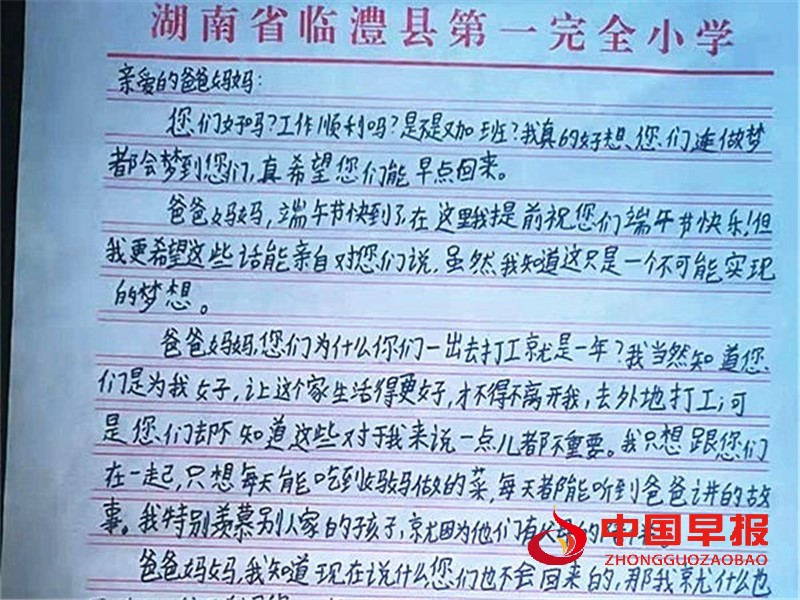 湖南省临澧县第一完全小学
亲爱的爸爸妈妈:
您们好吗?工作顺利吗?是不是又加班?我真的好想您们,连做梦
都会梦到您们,真希望您们能早点回来。
爸爸妈妈,端午节快到了,在这里我提前祝您们端午节快乐!但
我更希望这些话能亲自对您们说,虽然我知道这只是一个不可能实现
的梦想。
爸爸妈妈,您们为什么你们一出去打工就是一年?我当然知道您
们是为我好,让这个家生活得更好,才不得不离开我,去外地打工;可
是您们却不知道这些对于我来说一点儿都不重要。我只想跟您们
在一起,只想每天能吃到妈妈做的菜,每天都能听到爸爸讲的故
事。我特别羡慕别人家的孩子,就因为他们有父母的
中国早报
ZHONGGUOZAOBAO
爸爸妈妈,我知道现在说什么您们也不会回来的,那我就什么也